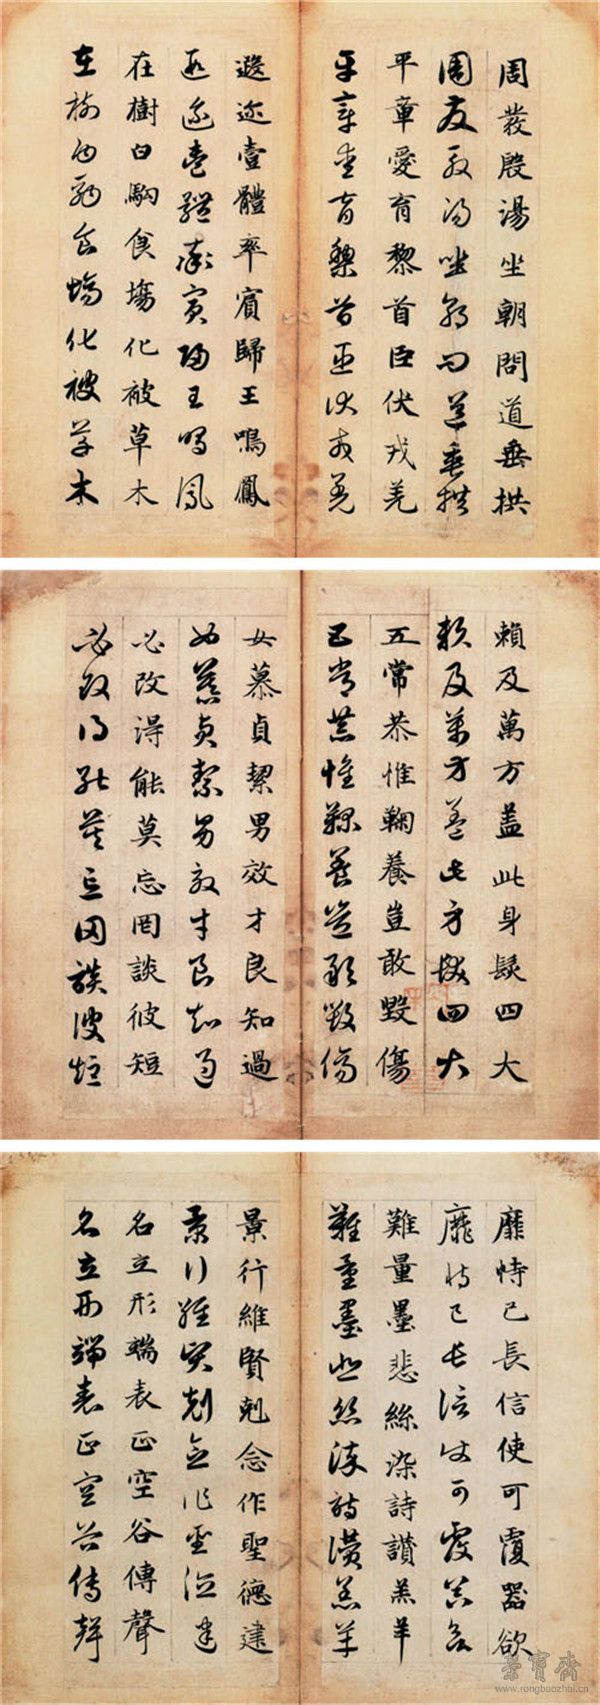 周發殷湯坐朝問道垂拱
周發殷湯坐朝問道垂拱
平章愛育黎首臣伏戎羌
平章愛育黎首臣伏戎羌
遐迩壹體率賓歸王鳴鳳
遐迩壹體率賓歸王鳴鳳
在樹白駒食塲化被草木
在樹白駒食塲化被草木
賴及萬方盖此身髮四大
賴及萬方盖此身髮四大
五常恭惟鞠養豈敢毀傷
五常恭惟鞠養豈敢毀傷
女慕貞絜男效才良知過
女慕貞絜男效才良知過
必改得能莫忘罔談彼短
必改得能莫忘罔談彼短
靡恃己長信使可覆器欲
靡恃己長信使可覆器欲
難量墨悲絲染詩讚羔羊
難量墨悲絲染詩讚羔羊
景行維賢剋念作聖德建
景行維賢剋念作聖德建
名立形端表正空谷傳聲
名立形端表正空谷傳聲
榮寶齋
www.rongbaozhai.cn